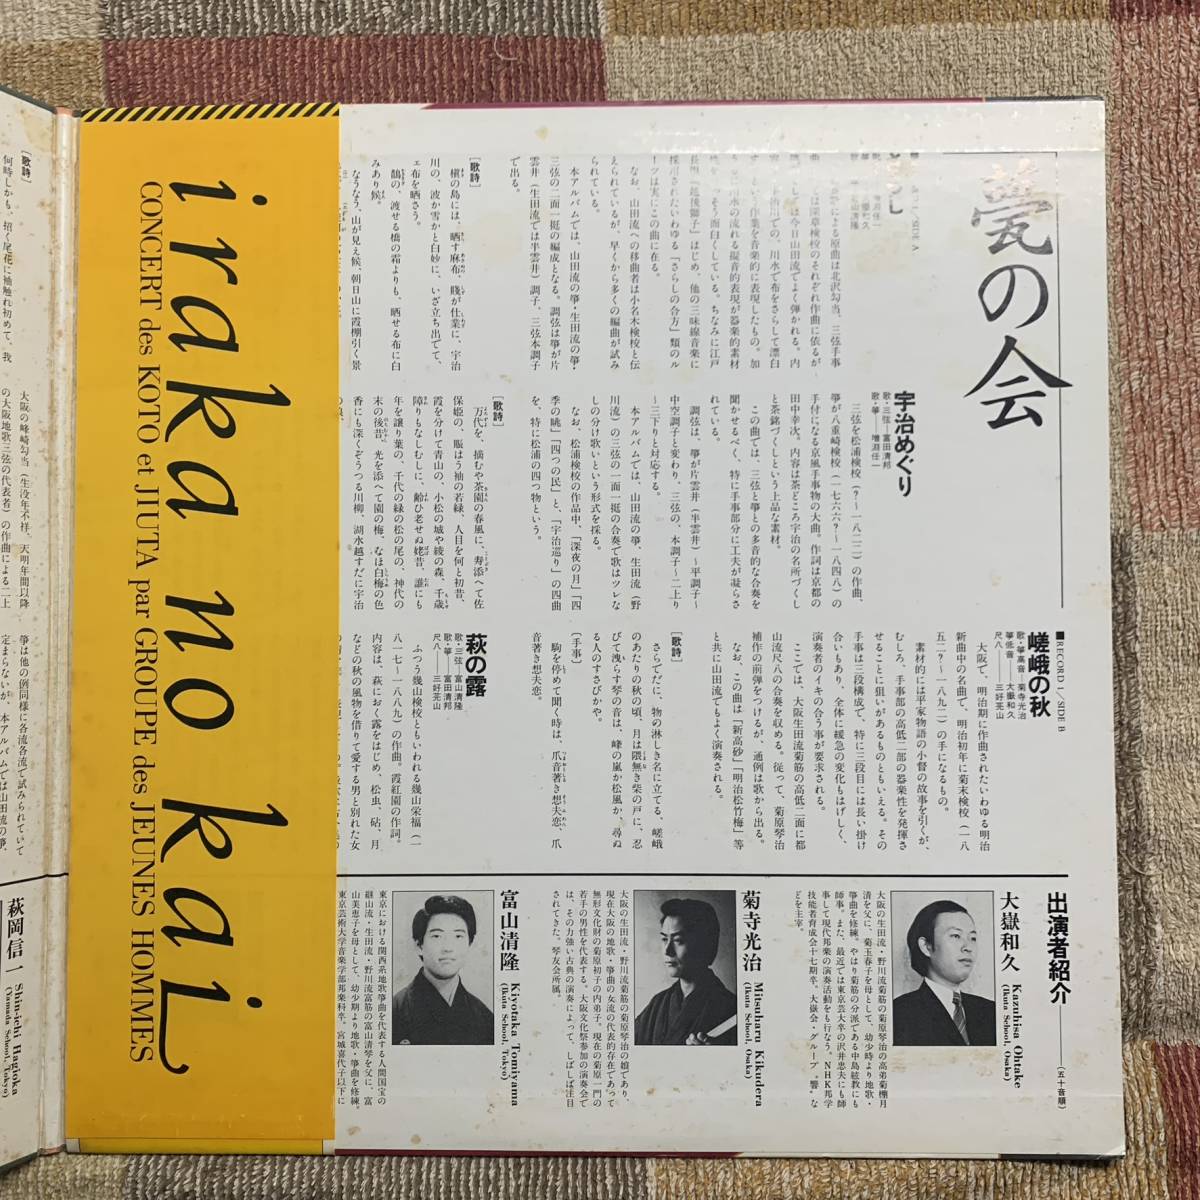 甍の会
irakano kai
CONCERT des KOTO et JIUTA par GROUPE des JEUNES HOMMES
なお、山田流への移曲者は小名木検校と伝
えられているが、早くから多くの編曲が試み
られている。
本アルバムでは、山田流の箏・生田流の箏・
三弦の二面一挺の編成となる。調弦は箏が片
雲井(生田流では半雲井)調子、三弦本調子
で出る。
[歌詩]
槇の島には、晒す麻布、賤が仕業に、宇治
川の、波か雪かと白妙に、いざ立ち出でて、
布を晒さう。
鵲の、渡せる橋の霜よりも、晒せる布に白
みあり候。
なうなう、山が見え候、朝日山に霞棚引く景
宇治めぐり
歌・三弦―富田清邦
歌・箏―増淵任一
三弦を松浦検校(?〜一八二二)の作曲、
箏が八重崎検校(一七六六?〜一八四八)の
手付になる京風手事物の大曲。作詞は京都の
田中幸次。内容は茶どころ宇治の名所づくし
と茶銘づくしという上品な素材。
この曲では、三弦と箏との多音的な合奏を
聞かせるべく、特に手事部分に工夫が凝らさ
れている。
調弦は、箏が片雲井(半雲井)〜平調子〜
中空調子と変わり、三弦の、本調子〜二上り
〜三下りと対応する。
本アルバムでは、山田流の箏、生田流(野
川流)の三弦の一面一挺の合奏で歌はツレな
しの分け歌いという形式を採る。
なお、松浦検校の作品中、「深夜の月」「四
季の眺」「四つの民」と、「宇治巡り」の四曲
を、特に松浦の四つ物という。
[歌詩]
万代を、摘むや茶園の春風に、寿添へて佐
保姫の、賑はう袖の若緑、人目を何と初昔、
霞を分けて青山の、小松の城や綾の森、千歳
障りもなしむしに、齢ひ老せぬ姥昔、誰にも
年を譲り葉の、千代の緑の松の尾の、神代の
末の後昔、光を添へて園の梅、なほ白梅の色
香にも深くぞうつる川柳、湖水越すだに宇治
■RECORD 1/SIDE B
嵯峨の秋
歌・箏高音―菊寺光治
箏低音―大嶽和久
尺八―三好芫山
大阪で、明治期に作曲されたいわゆる明治
新曲中の名曲で、明治初年に菊末検校(一八
五二?〜一八九二)の手になるもの。
素材的には平家物語の小督の故事を引くが、
むしろ、手事部の高低二部の器楽性を発揮さ
せることに狙いがあるものともいえる。その
手事は三段構成で、特に三段目には長い掛け
合いもあり、全体に緩急の変化もはげしく、
演奏者のイキの合う事が要求される。
ここでは、大阪生田流菊筋の高低二面に都
山流尺八の合奏を収める。従って、菊原琴治
補作の前弾をつけるが、通例は歌から出る。
なお、この曲は「新高砂」「明治松竹梅」等
と共に山田流でもよく演奏される。
[歌詩]
さらでだに、物の淋しき名に立てる、嵯峨
のあたりの秋の頃、月は隈無き柴の戸に、忍
びて洩らす琴の音は、峰の嵐か松風か、尋ぬ
る人のすさびかや。
(手事)
駒を停めて聞く時は、爪音著き想夫恋、爪
音著き想夫恋。
萩の露
歌・三弦―富山清隆
歌・箏―富田清邦
尺八―三好芫山
ふつう幾山検校ともいわれる幾山栄福(一
八一七〜一八八九)の作曲。霞紅園の作詞。
内容は、萩におく露をはじめ、松虫、砧、月
などの秋の風物を借りて愛する男と別れた女
出演者紹介―(五十音順)
大嶽和久 Kazuhisa Ohtake
(Ikuta School, Osaka)
大阪の生田流・野川流菊筋の菊原琴治の高弟菊棚月
清を父に、菊玉春子を母として、幼少時より地歌・
箏曲を修練。やはり菊筋の分派である中島絃教にも
師事。また、最近では東京芸大卒の沢井忠夫にも師
事して現代邦楽の演奏活動をも行なう。NHK邦楽
技能者育成会十七期卒。大嶽会・グループ〝響〟な
どを主宰。
菊寺光治 Mitsuharu Kikudera
(Ikuta School, Osaka)
大阪の生田流・野川流菊筋の菊原琴治の甥であり、
現在大阪の地歌・箏曲の女流の代表的存在であって
無形文化財の菊原初子の内弟子。現在の菊原一門の
若手の男性を代表する。大阪文化祭参加の演奏会で
は、その力強い古典の演奏によって、しばしば注目
されてきた。琴友会所属。
富山清隆 Kiyotaka Tomiyama
(Ikuta School, Tokyo)
東京における関西系地歌箏曲を代表する人間国宝の
継山流・生田流・野川流富筋の富山清琴を父に、富
山美恵子を母として、幼少期より地歌・箏曲を修練。
東京芸術大学音楽学部邦楽科卒。宮城喜代子以下に
[歌詩]
何時しかも、招く尾花に袖触れ初めて、我
大阪の峰崎勾当(生没年不祥。天明年間以降
の大阪地歌三弦の代表者)の作曲による二上
箏は他の例同様に各流各流で試みられていて
定まらないが、本アルバムでは山田流の箏、
萩岡信一 Shin-ichi Hagioka
(Yamada School, Tokyo)